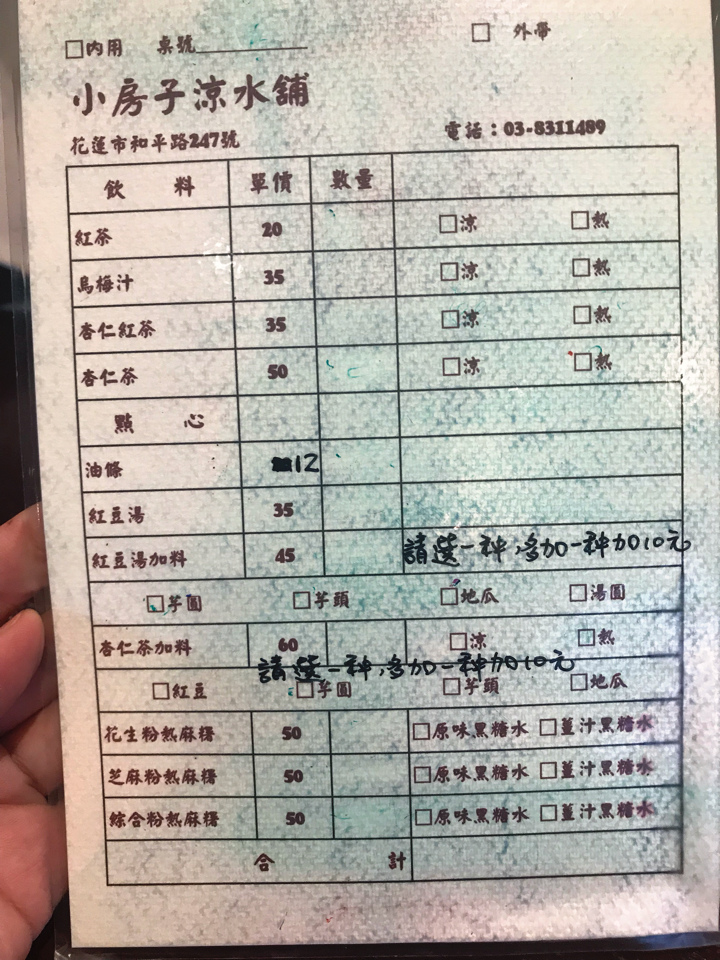 □內用 桌號________ □ 外帶
小房子涼水舖
花蓮市和平路247號 電話：03-8311489
飲 料 單價 數量
紅茶 20 □涼 □熱
烏梅汁 35 □涼 □熱
杏仁紅茶 35 □涼 □熱
杏仁茶 50 □涼 □熱
點 心
油條 12
紅豆湯 35
紅豆湯加料 45 請選一种,多加一种加10元
□芋圓 □芋頭 □地瓜 □湯圓
杏仁茶加料 60 □涼 □熱
請選一种,多加一种加10元
□紅豆 □芋圓 □芋頭 □地瓜
花生粉熱麻糬 50 □原味黑糖水 □薑汁黑糖水
芝麻粉熱麻糬 50 □原味黑糖水 □薑汁黑糖水
綜合粉熱麻糬 50 □原味黑糖水 □薑汁黑糖水
合 計